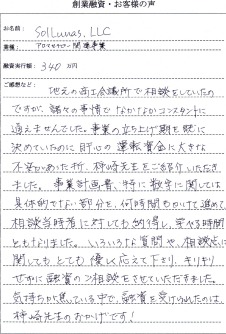 創業融資・お客様の声
お名前： SolLunas, LLC
業種： アロマセラピー関連事業
融資実行額： 340 万円
ご感想など：
地元の商工会議所で相談をしていたの
ですが、諸々の事情でなかなかコンスタントに
通えませんでした。事業の立ち上げ期を既に
決めていたのに肝心の運転資金に大きな
不安があった折、柿崎先生をご紹介いただき
ました。事業計画書、特に数字に関しては
具体的でない部分を、何時間もかけて進めて、
相談当時者に対しても納得し、実やる時間
ともなりました。いろいろな質問や、相談点に
関しても とても 優しく応えて下さり、ギリギリ
せずに融資の 相談をさせていただきました。
気持ちが焦っている中で、融資を受けられたのは、
柿崎先生のおかげです！